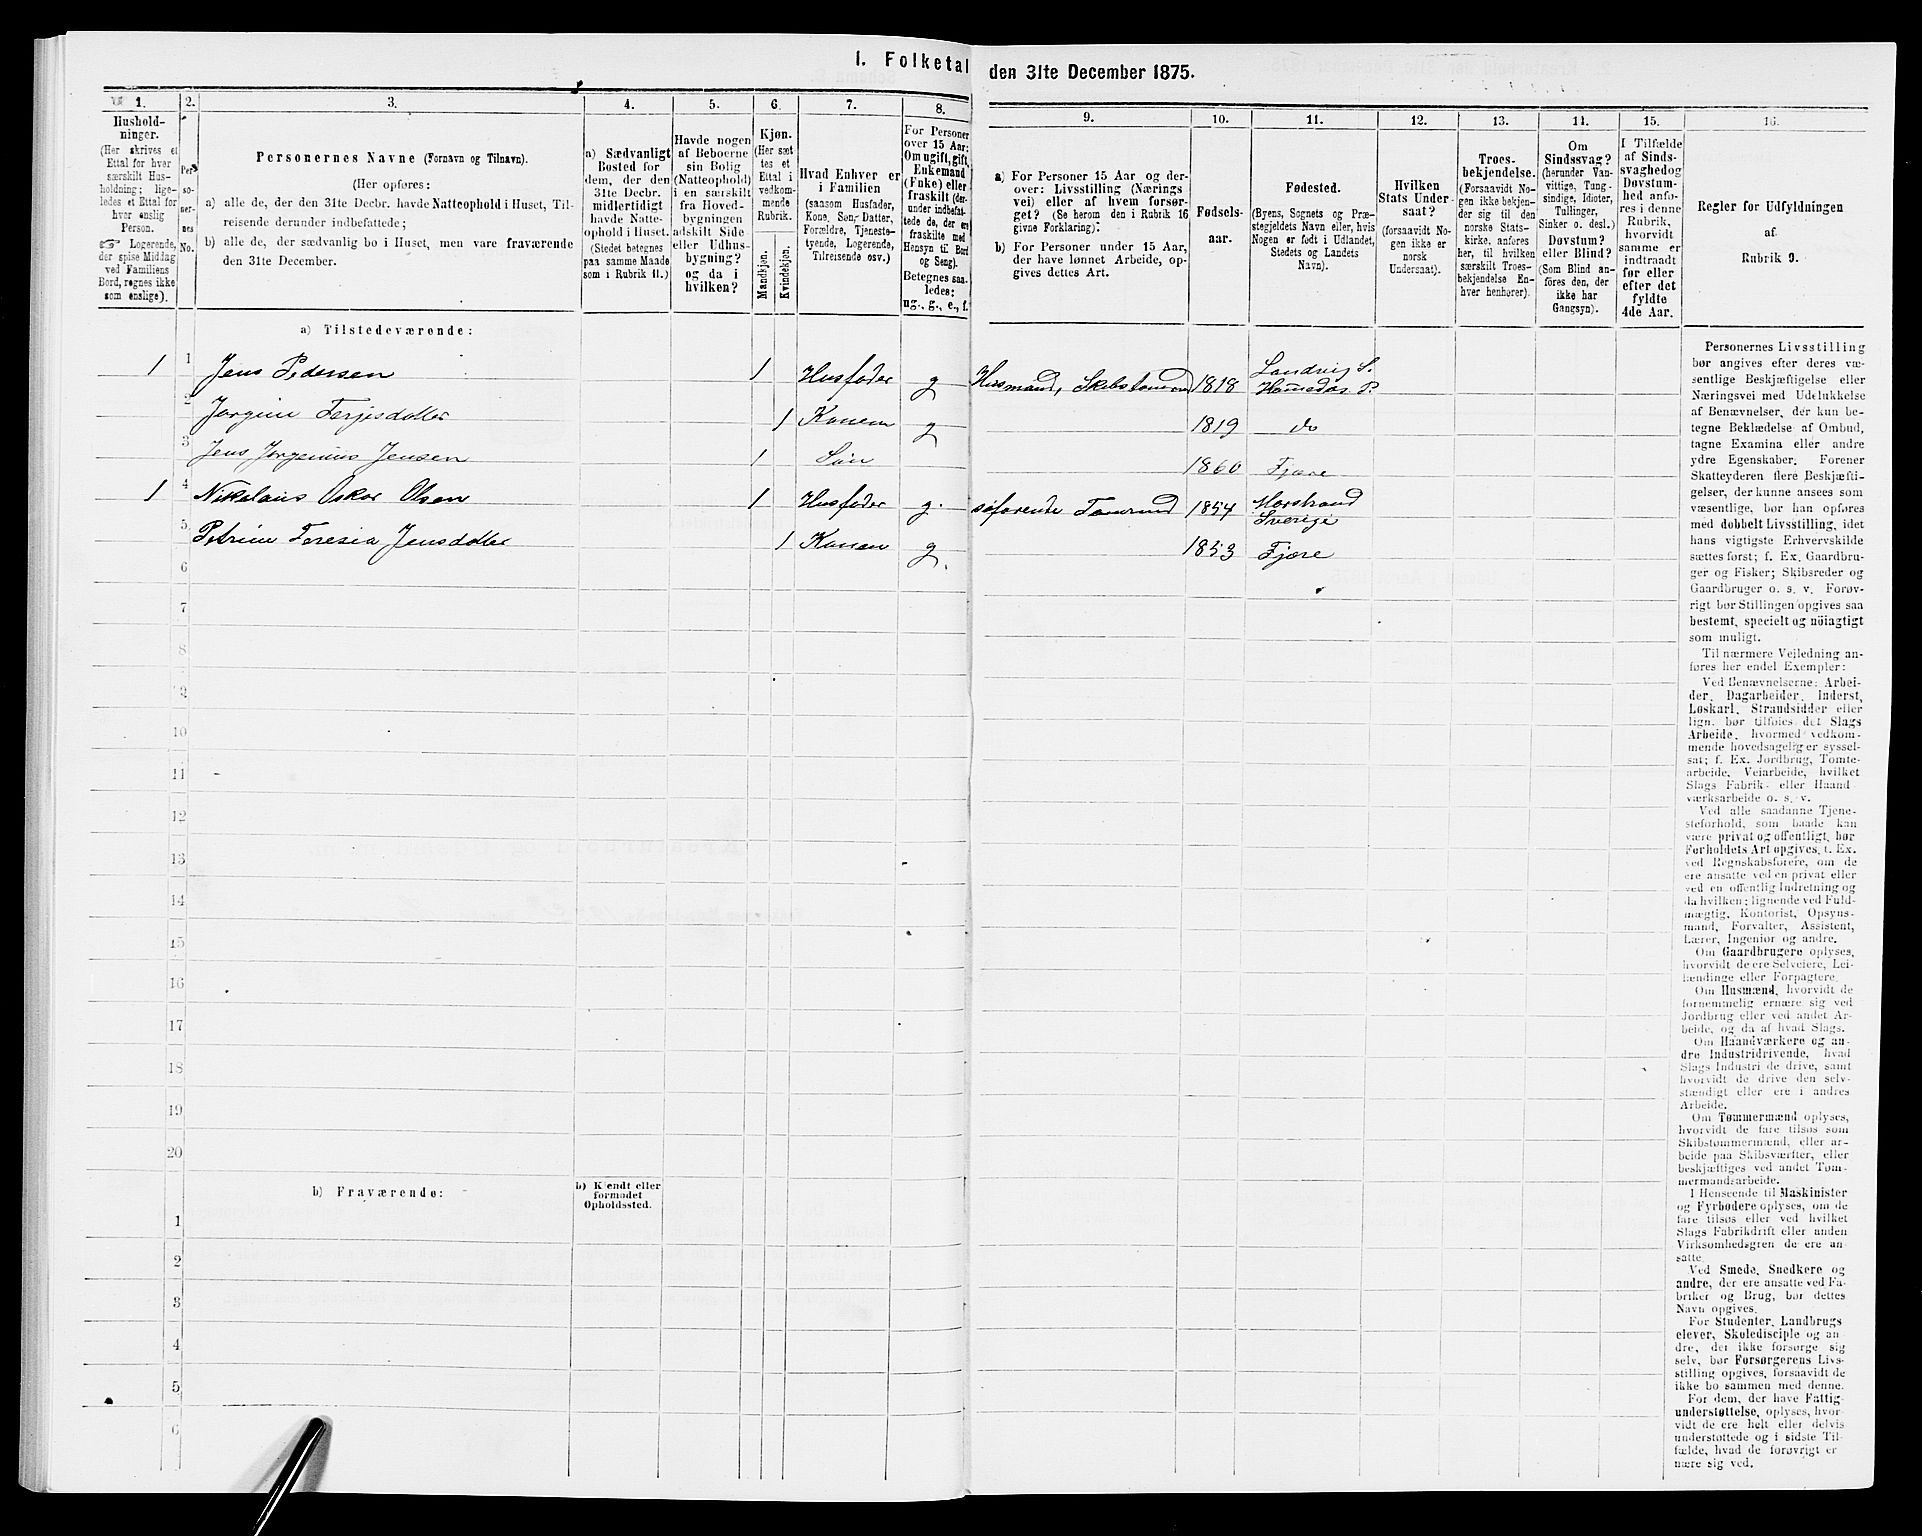 I. Folketal
den 31te December 1875.
1.
Hushold-
ninger.
(Her skrives et
Ettal for hver
særskilt Hus-
holdning; lige-
ledes et Ettal for
hver enslig
Person.
☞ Logerende,
der spise Middag
ved Familiens
Bord, regnes ikke
som enslige).
2.
Per-
so-
ner-
nes
No.
3.
Personernes Navne (Fornavn og Tilnavn).
(Her opføres:
a) alle de, der den 31te Decbr. havde Natteophold i Huset, Til-
reisende derunder indbefattede;
b) alle de, der sædvanlig bo i Huset, men vare fraværende
den 31te December.
4.
a) Sædvanligt
Bosted for
dem, der den
31te Decbr.
midlertidigt
havde Natte-
ophold i Huset.
(Stedet betegnes
paa samme Maade
som i Rubrik 11.)
5.
Havde nogen
af Beboerne
sin Bolig
(Natteophold)
i en særskilt
fra Hoved-
bygningen
adskilt Side
eller Udhus-
bygning?
og da i
hvilken?
6.
Kjøn.
(Her sæt-
tes et
Ettal i
vedkom-
mende
Rubrik.
Mandkjøn.
Kvindekjøn.
7.
Hvad Enhver er
i Familien
(saasom Husfader,
Kone, Søn, Datter,
Forældre, Tjeneste-
tyende, Logerende,
Tilreisende osv.)
8.
For Personer
over 15 Aar:
Om ugift, gift,
Enkemand
(Enke) eller
fraskilt (der-
under indbefat-
tede de, der ere
fraskilte med
Hensyn til Bord
og Seng).
Betegnes saa-
ledes:
ug., g., e., f.
9.
a) For Personer 15 Aar og der-
over: Livsstilling (Nærings-
vei) eller af hvem forsør-
get? (Se herom den i Rubrik 16
givne Forklaring):
b) For Personer under 15 Aar,
der have lønnet Arbeide, op-
gives dettes Art.
10.
Fødsels-
aar.
11.
Fødested.
(Byens, Sognets og Præ-
stegjeldets Navn eller, hvis
Nogen er født i Udlandet,
Stedets og Landets
Navn).
12.
Hvilken
Stats Under-
saat?
(forsaavidt No-
gen ikke er
norsk
Undersaat).
13.
Troes-
bekjendelse.
(Forsaavidt No-
gen ikke bekjen-
der sig til den
norske Stats-
kirke, anføres
her, til hvilken
særskilt Troes-
bekjendelse En-
hver henhører).
14.
Om
Sindssvag?
(herunder Van-
vittige, Tung-
sindige, Idioter,
Tullinger,
Sinker o. desl.)
Døvstum?
eller Blind?
(Som Blind an-
føres den, der
ikke har
Gangsyn).
15.
I Tilfælde
af Sinds-
svaghed og
Døvstum-
hed anfø-
res i denne
Rubrik,
hvorvidt
samme er
indtraadt
før eller
efter det
fyldte
4de Aar.
16.
Regler for Udfyldningen
af
Rubrik 9.
a) Tilstedeværende:
1 1 Jens Pedersen 1 Husfader g Husmand, Skibstømmrmd 1818 Landvig S. Homedas P.
2 Jørgine Terjesdatter 1 Konen g 1819 do
3 Jens Jørgenius Jensen 1 Søn 1860 Fjære
1 4 Nikolaus Oskar Olsen 1 Husfader g. søfarende Tømrmd 1854 Marstrand Sverige
5 Petrine Teresia Jensdatter 1 Konen g. 1853 Fjære
6
7
8
9
10
11
12
13
14
15
16
17
18
19
20
b) Fraværende:
b) Kjendt eller
formodet
Opholdssted.
1
2
3
4
5
6
Personernes Livsstilling
bør angives efter deres væ-
sentlige Beskjæftigelse eller
Næringsvei med Udelukkelse
af Benævnelser, der kun be-
tegne Beklædelse af Ombud,
tagne Examina eller andre
ydre Egenskaber. Forener
Skatteyderen flere Beskjæf-
tigelser, der kunne ansees som
væsentlige, bør han opføres
med dobbelt Livsstilling, idet
hans vigtigste Erhvervskilde
sættes først; f. Ex. Gaardbru-
ger og Fisker; Skibsreder og
Gaardbruger o. s. v. Forøv-
rigt bør Stillingen opgives saa
bestemt, specielt og nøiagtigt
som muligt.
Til nærmere Veiledning an-
føres her endel Exempler:
Ved Benævnelserne: Arbei-
der, Dagarbeider, Inderst,
Løskarl, Strandsidder eller
lign. bør tilføies det Slags
Arbeide, hvormed vedkom-
mende hovedsagelig er syssel-
sat; f. Ex. Jordbrug, Tomte-
arbeide, Veiarbeide, hvilket
Slags Fabrik- eller Haand-
værksarbeide o. s. v.
Ved alle saadanne Tjene-
steforhold, som baade kan
være privat og offentligt, bør
Forholdets Art opgives, f. Ex.
ved Regnskabsførere, om de
ere ansatte ved en privat eller
ved en offentlig Indretning og
da hvilken; lignende ved Fuld-
mægtig, Kontorist, Opsyns-
mand, Forvalter, Assistent,
Lærer, Ingeniør og andre.
Om Gaardbrugere oplyses,
hvorvidt de ere Selveiere, Lei-
lændinge eller Forpagtere.
Om Husmænd, hvorvidt de
fornemmelig ernære sig ved
Jordbrug eller ved andet Ar-
beide, og da af hvad Slags.
Om Haandværkere og an-
dre Industridrivende, hvad
Slags Industri de drive, samt
hvorvidt de drive den selv-
stændigt eller ere i andres
Arbeide.
Om Tømmermænd oplyses,
hvorvidt de fare tilsøs som
Skibstømmermænd, eller ar-
beide paa Skibsværfter, eller
beskjæftiges ved andet Tøm-
mermandsarbeide.
I Henseende til Maskinister
og Fyrbødere oplyses, om de
fare tilsøs eller ved hvilket
Slags Fabrikdrift eller anden
Virksomhedsgren de ere an-
satte.
Ved Smede, Snedkere og
andre, der ere ansatte ved Fa-
briker og Brug, bør dettes
Navn opgives.
For Studenter, Landbrugs-
elever, Skoledisciple og an-
dre, der ikke forsørge sig
selv, bør Forsørgerens Livs-
stilling opgives, forsaavidt de
ikke bo sammen med denne.
For dem, der have Fattig-
understøttelse, oplyses, hvor-
vidt de ere helt eller delvis
understøttede og i sidste Til-
fælde, hvad de forøvrigt er-
nære sig ved.